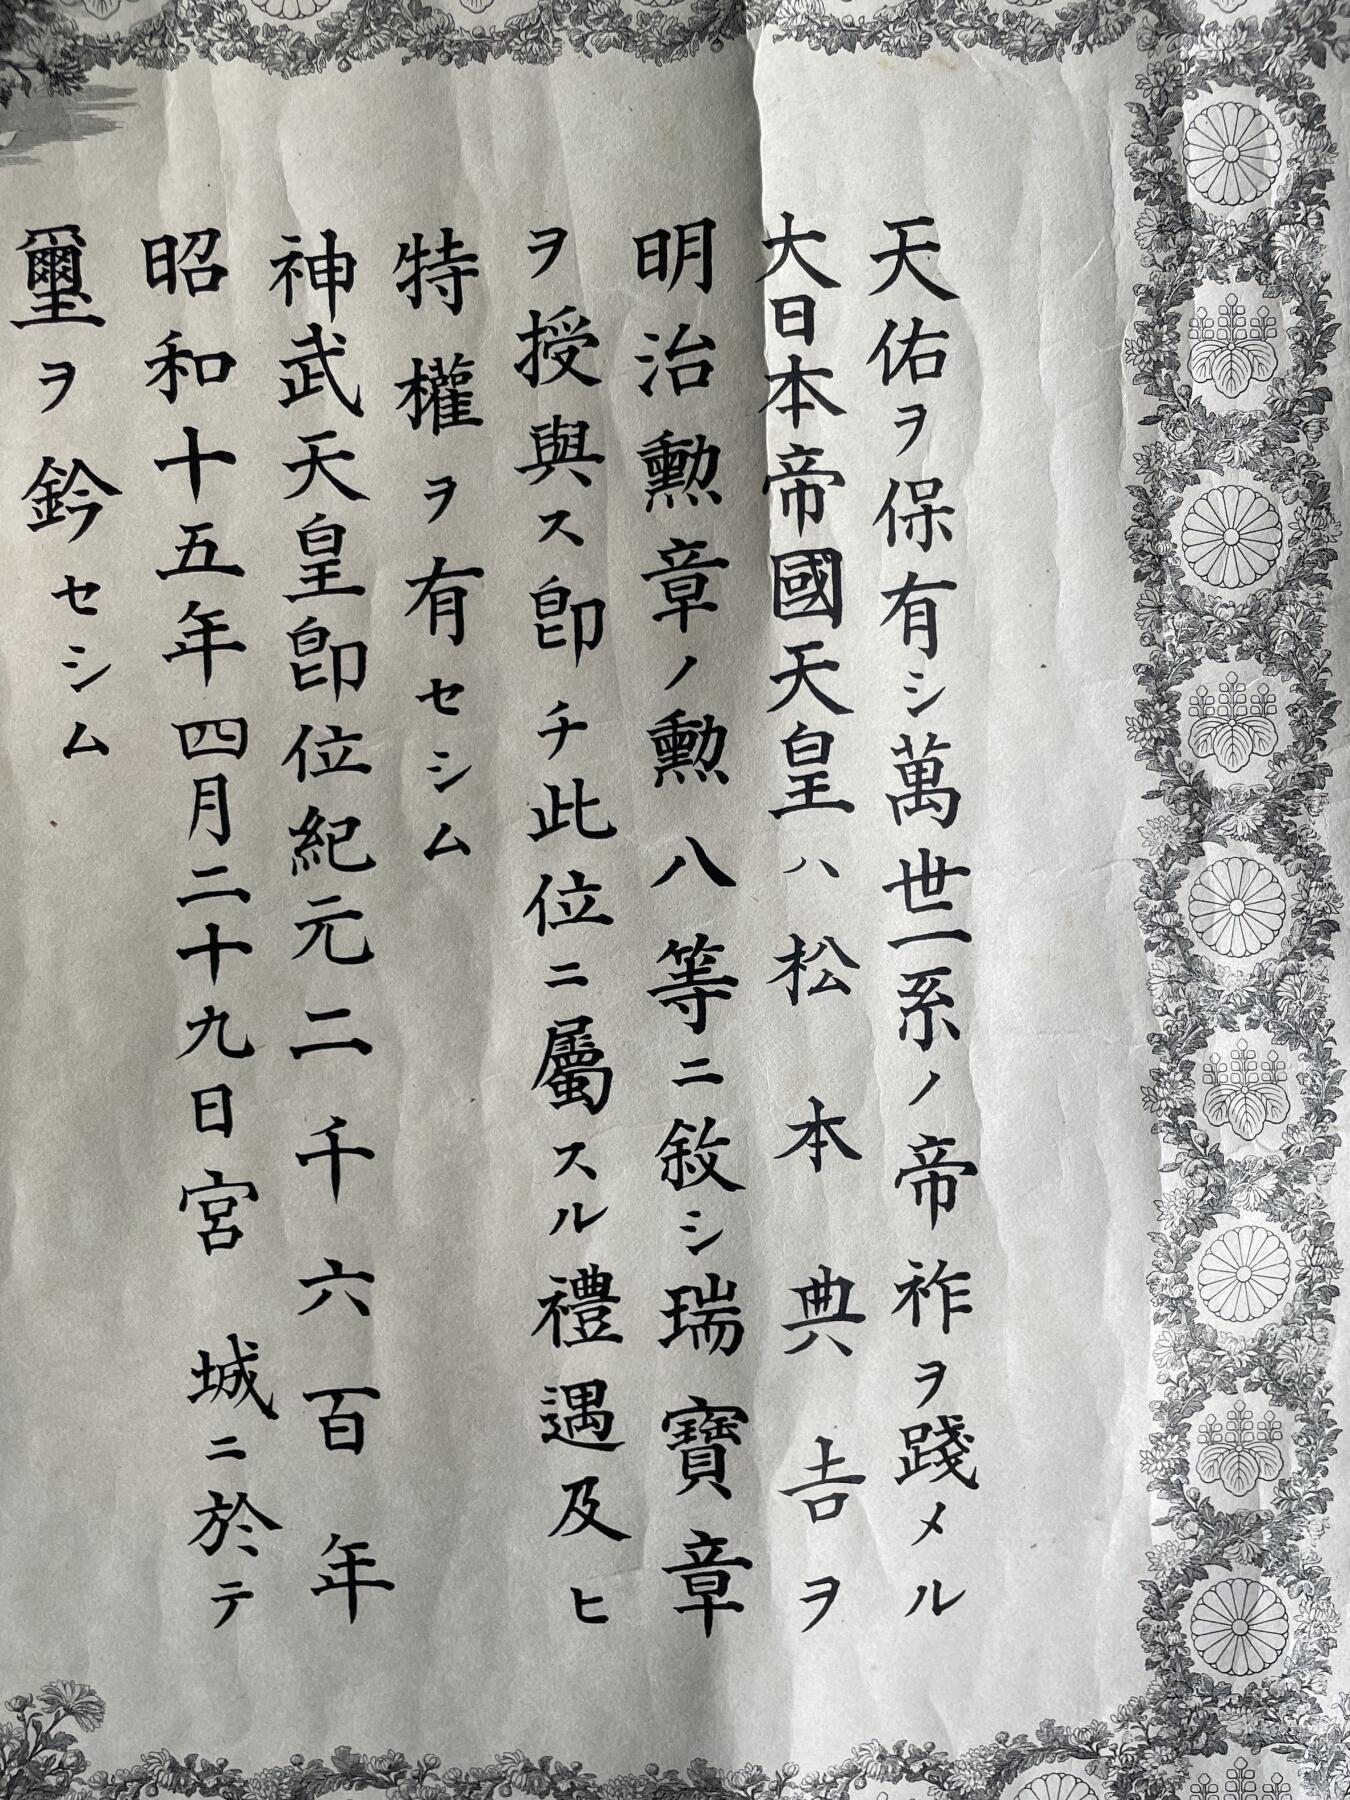 天佑ヲ保有シ萬世一系ノ帝祚ヲ踐メル
大日本帝國天皇ハ松本典吉ヲ
明治勳章ノ勳八等ニ敘シ瑞寶章
ヲ授與ス卽チ此位ニ屬スル禮遇及ヒ
特權ヲ有セシム
神武天皇卽位紀元二千六百年
昭和十五年四月二十九日宮城ニ於テ
璽ヲ鈐セシム